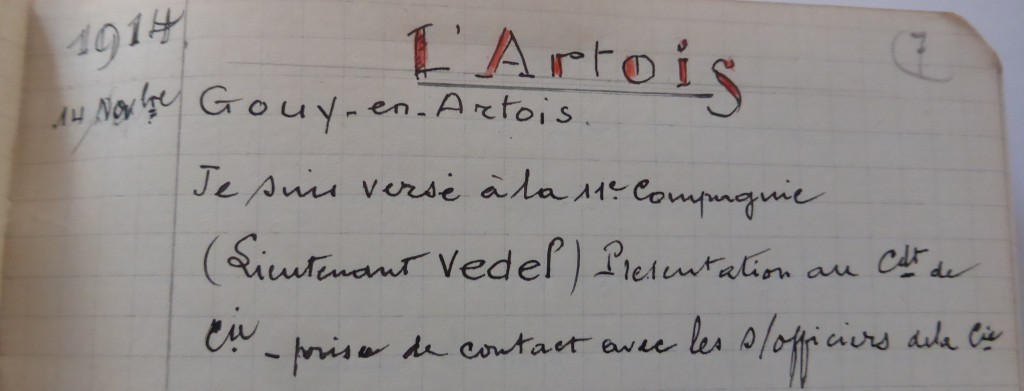 1914
L'Artois
7
14 Novbre
Gouy-en-Artois.
Je suis versé à la 11e Compagnie
(Lieutenant Vedel) Présentation au Cdt de
Cie - prise de contact avec les s/officiers de la Cie